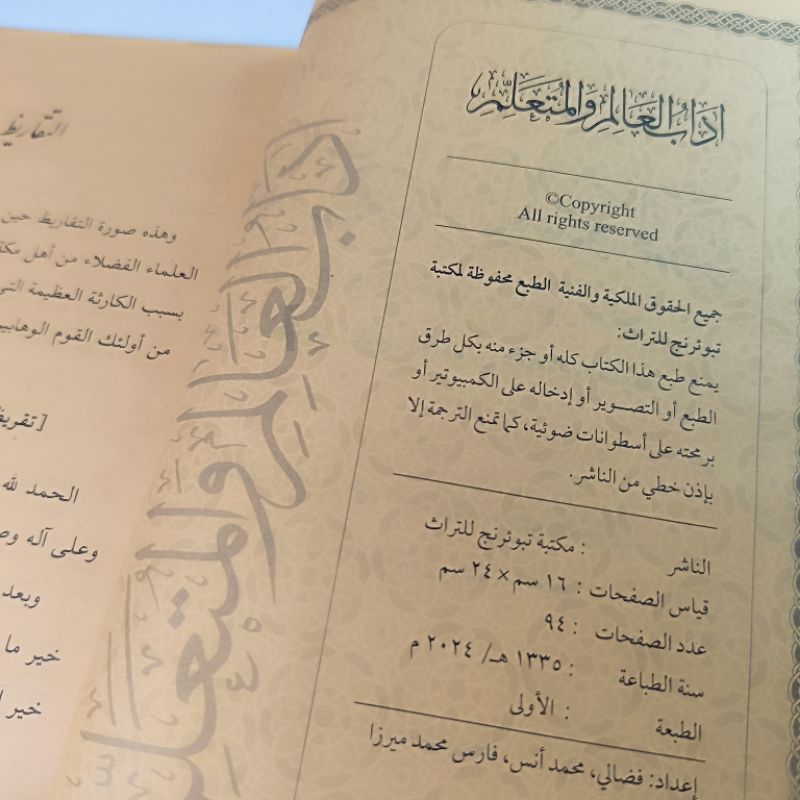 اٰدَابُ العَالِمِ وَالمُتَعَلِّمِ
©Copyright
All rights reserved
جميع الحقوق الملكية والفنية الطبع محفوظة لمكتبة
تبوئرنج للتراث:
يمنع طبع هذا الكتاب كله أو جزء منه بكل طرق
الطبع أو التصوير أو إدخاله على الكمبيوتير أو
برمحته على أسطوانات ضوئية، كما تمنع الترجمة إلا
بإذن خطي من الناشر.
الناشر : مكتبة تبوئرنج للتراث
قياس الصفحات : ١٦ سم × ٢٤ سم
عدد الصفحات : ٩٤
سنة الطباعة : ١٣٣٥ هـ/ ٢٠٢٤ م
الطبعة : الأولى
إعداد: فضالي، محمد أنس، فارس محمد ميرزا
اٰدَابُ العَالِمِ وَالمُتَعَلِّمِ
التقاريظ
وهذه صورة التقاريظ حين
العلماء الفضلاء من أهل
بسبب الكارثة العظيمة التي
من أولئك القوم
[تقريظ
الحمد لله
وعلى آله
وبعد
خير ما
خير